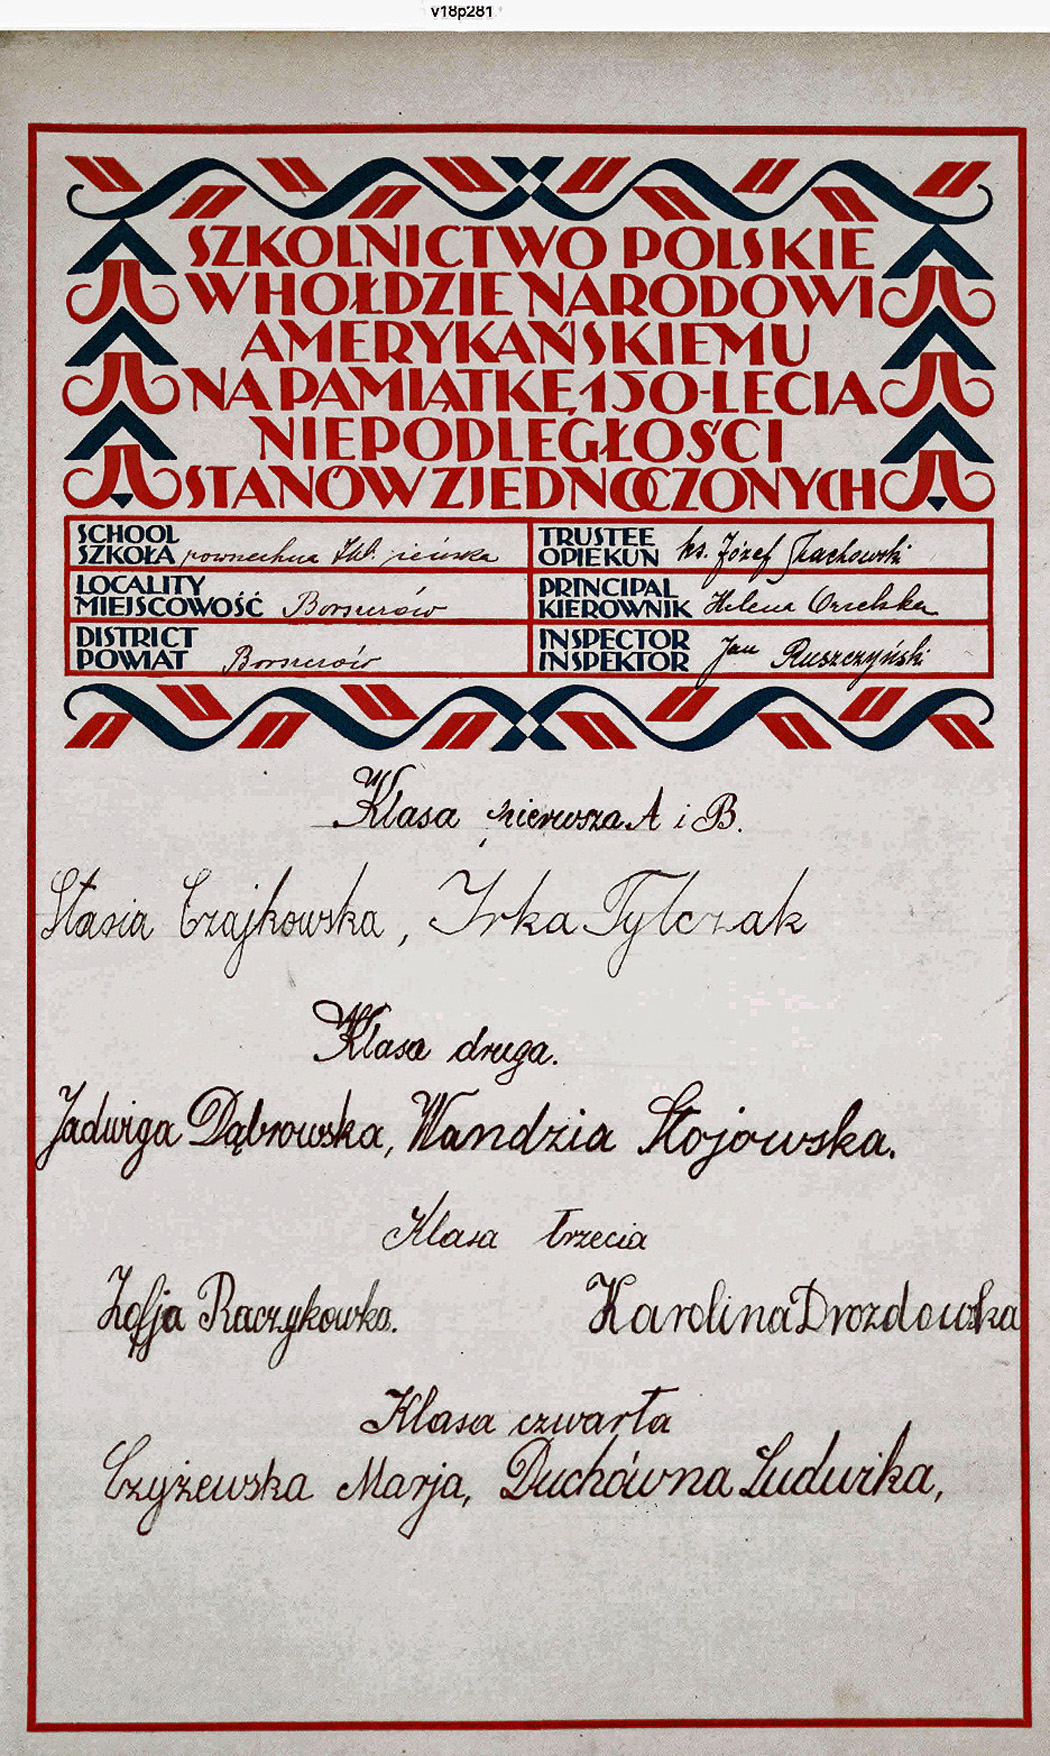 v18p281
SZKOLNICTWO POLSKIE
W HOŁDZIE NARODOWI
AMERYKAŃSKIEMU
NA PAMIĄTKĘ 150-LECIA
NIEPODLEGŁOŚCI
STANÓW ZJEDNOCZONYCH
SCHOOL
SZKOŁA powszechna żeńska
LOCALITY
MIEJSCOWOŚĆ Borszczów
DISTRICT
POWIAT Borszczów
TRUSTEE
OPIEKUN ks. Józef
PRINCIPAL
KIEROWNIK Helena
INSPECTOR
INSPEKTOR Jan Ruszczyński
Klasa pierwsza A i B.
Stasia Czajkowska, Irka Tylczak
Klasa druga.
Jadwiga Dąbrowska, Wandzia Stojowska.
Klasa trzecia
Zofja Raczykowka. Karolina Drozdowska
Klasa czwarta
Czyżewska Marja, Duchówna Ludwika,